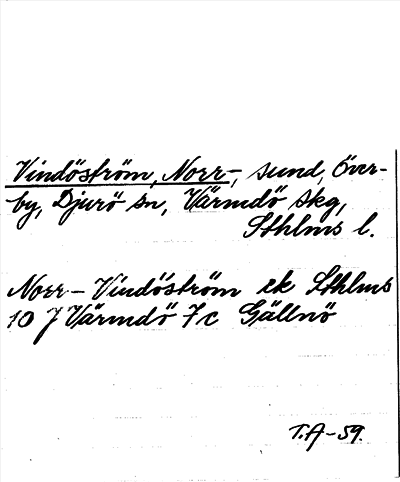 Vindöström, Norr-, sund, Över-
by, Djurö sn, Värmdö skg,
Sthlms l.
Norr-Vindöström ek Sthlms
10 J Värmdö 7c Gällnö
T.A-59.